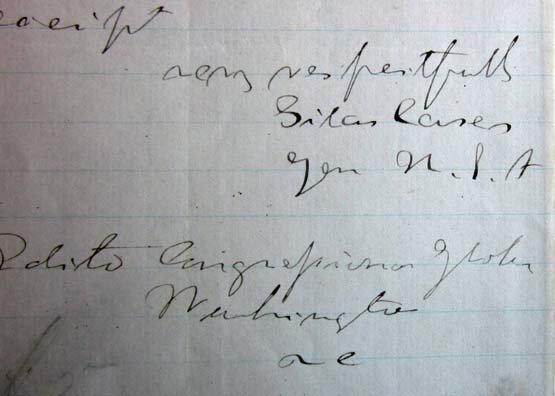 receipt
very respectfully
Silas Casey
Gen U.S.A
Editor Congressional Globe
Washington
D C